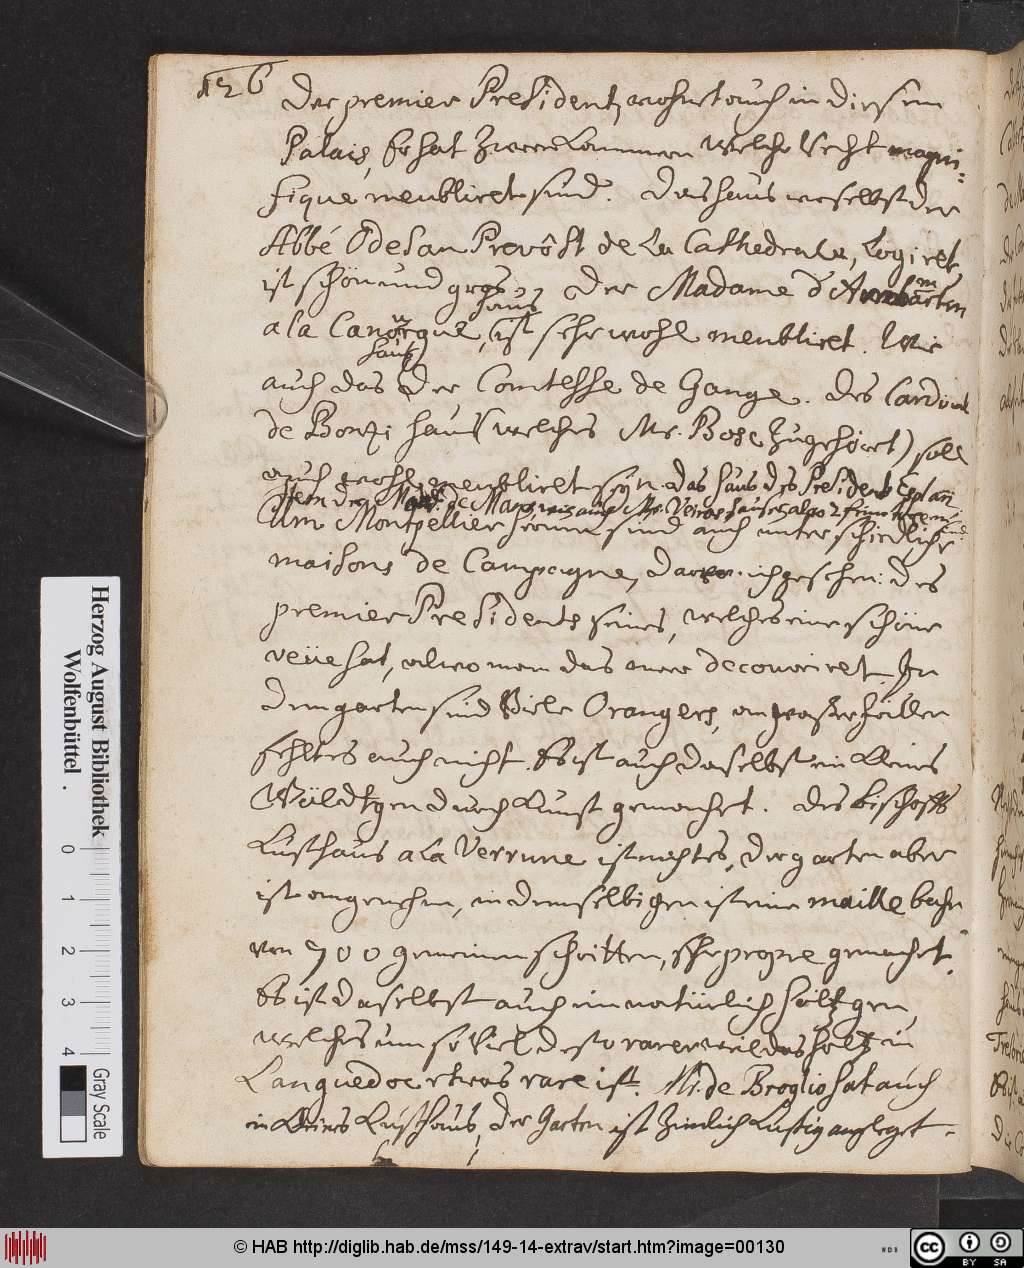 126
Der premier President, wohnet auch in diesem
Palais, Er hat zwee Cammern welche recht magni-
fique meubliret sind. Das haus woselbst der
Abbé Odesan Prevôst de La Cathedrale, Logiret,
ist schön und gros. Der Madame d'
haus
a la Canourgue, ist sehr wohl meubliret. Wie
haus
auch das der Comtesse de Gange. Des Cardinal
de Bonzi haus (welches Mr. Bose zugehöret) soll
auch wohl meubliret seyn. das haus des Presidents
Item der de
Um Montpellier herum sind auch unterschiedliche
maisons de Campagne, davon ich gesehen: des
premier Presidents seines, welches eine schöne
veüe hat, alwo man das meer decouvriret. In
dem garten sind Viele Orangers, an wasserfällen
fehlt es auch nicht. Es ist auch daselbst ein kleines
Wäldtgen durch Kunst gemachet. Des bischoffs
Lusthaus a La Verrune ist nichtes, der garten aber
ist angenehm, in demselbigen ist eine maille bahn
von 700 gemeinen schritten, sehr propre gemachet.
Es ist daselbst auch ein natürlich höltzgen,
welches um so Viel desto rarer weil das holtz in
Languedoc etwas rare ist. Mr. de Broglio hat auch
ein kleines Lusthaus, der Garten ist zimlich Lustig angeleget -
Herzog August Bibliothek
Wolfenbüttel
0 1 2 3 4
Gray Scale
© HAB http://diglib.hab.de/mss/149-14-extrav/start.htm?image=00130
WDB
cc BY SA